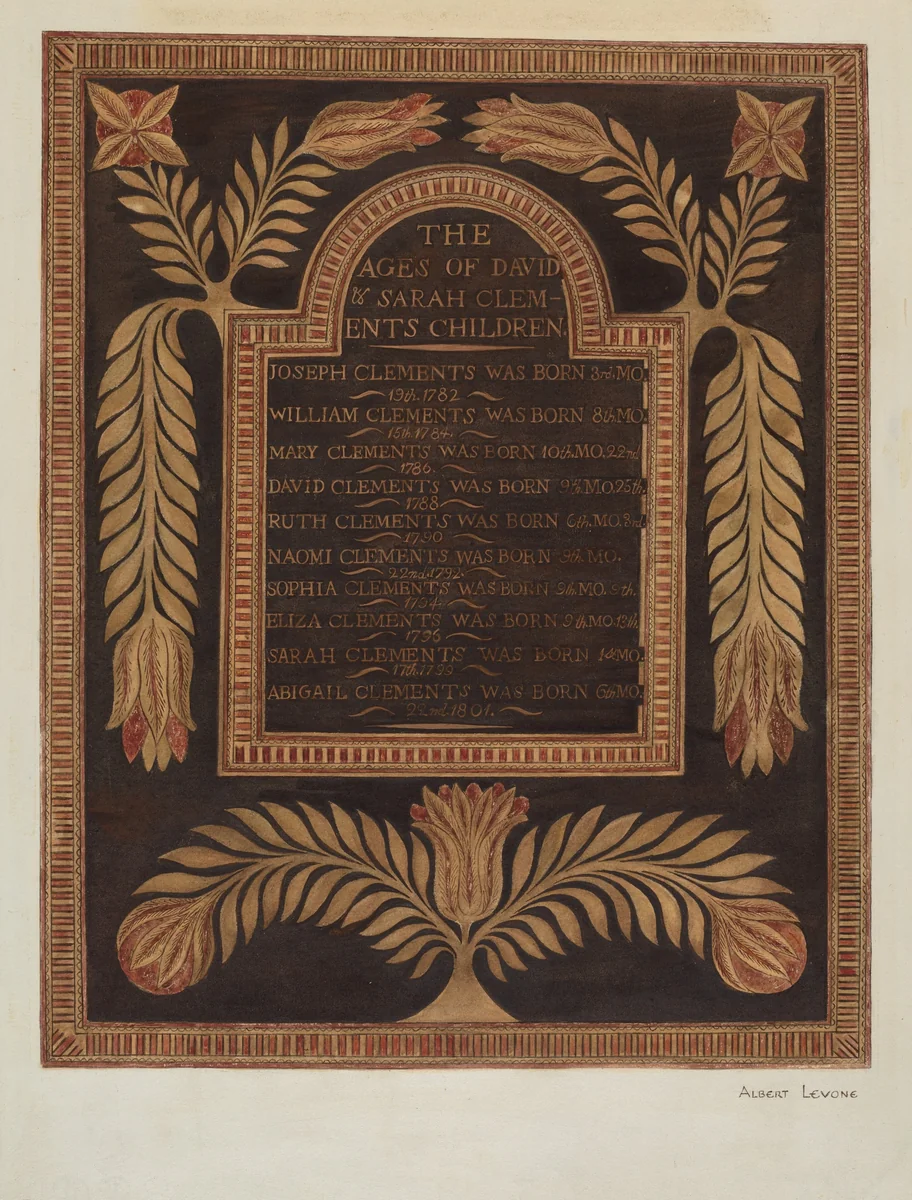 THE
AGES OF DAVID
& SARAH CLEM-
ENTS CHILDREN.
JOSEPH CLEMENTS WAS BORN 3rd.MO.
19th.1782
WILLIAM CLEMENTS WAS BORN 8th MO.
15th.1784.
MARY CLEMENTS WAS BORN 10th MO.22nd
1786.
DAVID CLEMENTS WAS BORN 9th MO.25th.
1788
RUTH CLEMENTS WAS BORN 6th.MO.
1790
NAOMI CLEMENTS WAS BORN 9th MO.
22nd.1792.
SOPHIA CLEMENTS WAS BORN 9th MO.
1794
ELIZA CLEMENTS WAS BORN 9th MO 13th.
1796
SARAH CLEMENTS WAS BORN 1st MO.
17th.1799
ABIGAIL CLEMENTS WAS BORN 6th MO.
22nd.1801.
ALBERT LEVONE